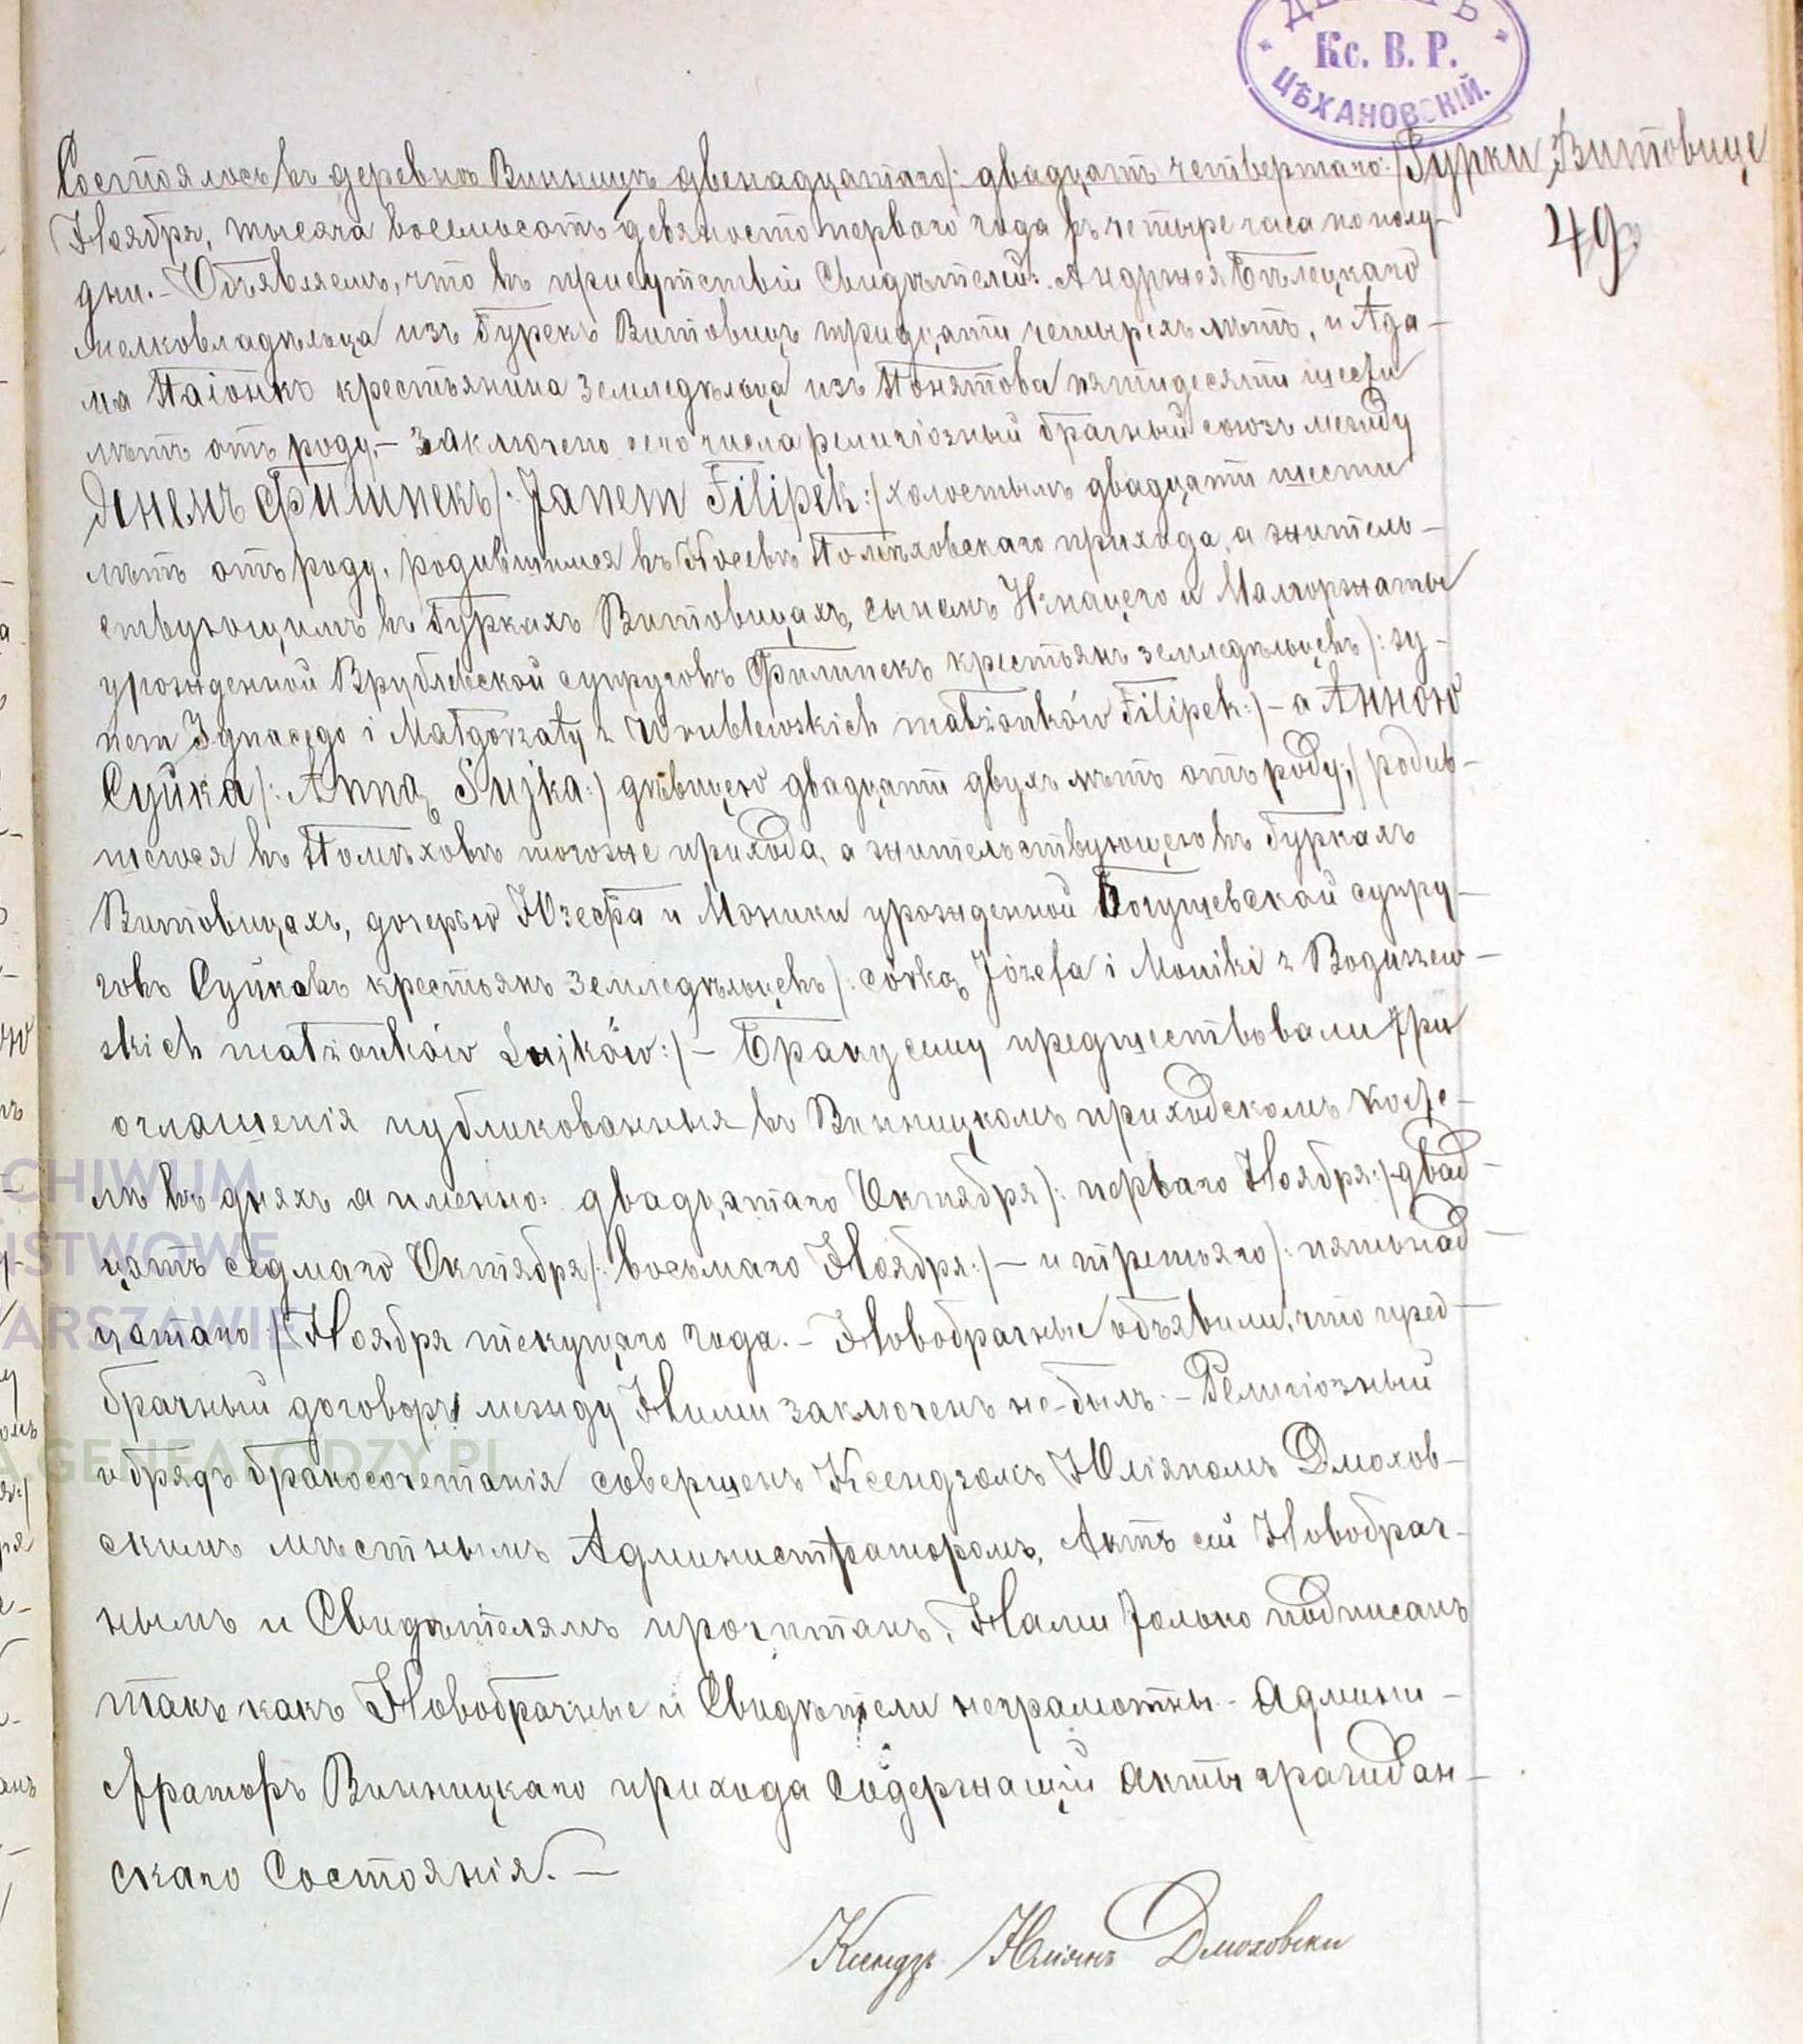 ДЕКАНЪ
Кс. В. Р.
ЦѢХАНОВСКІЙ.
Состоялось въ деревнѣ Винницѣ двенадцатаго /: двадцать четвертаго :/ Гурки Витовице
49
Ноября, тысяча восемьсотъ девяносто перваго года въ четыре часа по полу-
дни. — Объявляемъ, что въ присутствіи Свидѣтелей: Андржея Бѣлецкаго
мелковладѣльца изъ Гурекъ Витовицъ тридцати четырехъ лѣтъ, и Ада-
ма Паіонкъ крестьянина земледѣльца изъ Понятова пятидесяти шести
лѣтъ отъ роду, — заключено сего числа религіозный брачный союзъ между
Янемъ Филипекъ /: Janem Filipek :/ холостымъ двадцати шести
лѣтъ отъ роду, родившимся въ Носевѣ Помѣховскаго прихода, а житель-
ствующимъ въ Гуркахъ Витовицахъ, сынемъ Игнацего и Малгоржаты
урожденной Врублевской супруговъ Филипекъ крестьянъ земледѣльцевъ /: sy-
nem Ignacego i Małgorzaty z Wrublewskich małżonków Filipek :/ — а Анною
Суйка /: Anną Sujka :/ дѣвицею двадцати двухъ лѣтъ отъ роду, родив-
шеюся въ Помѣховѣ тогоже прихода, а жительствующею въ Гуркахъ
Витовицахъ, дочерью Юзефа и Моники урожденной Богушевской супру-
говъ Суйковъ крестьянъ земледѣльцевъ /: córką Józefa i Moniki z Boguszew-
skich małżonków Sujków :/ — Браку сему предшествовали три
оглашенія публикованныя въ Винницкомъ приходскомъ косте-
лѣ въ дняхъ а именно: двадцатаго Октября /: перваго Ноября :/ двад-
цать седмаго Октября /: восьмаго Ноября :/ — и третьяго /: пятьнад-
цатаго :/ Ноября текущаго года. — Новобрачные объявили, что пред-
брачный договоръ между Ними заключенъ не былъ. — Религіозный
обрядъ бракосочетанія совершенъ Ксендзомъ Юліяномъ Дмохов-
скимъ мѣстнымъ Администраторомъ, Актъ сей Новобрач-
нымъ и Свидѣтелямъ прочитанъ, Нами только подписанъ
такъ какъ Новобрачные и Свидѣтели неграмотны. — Админи-
страторъ Винницкаго прихода Содержащій акты граждан-
скаго Состоянія. —
Ксендзъ Юліянъ Дмоховски
CHIWUM
ŃSTWOWE
ARSZAWIE
A.GENEALODZY.PL